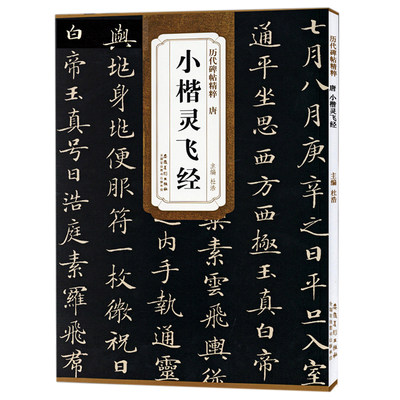 历代碑帖精粹 唐
小楷灵飞经
主编 杜浩
安徽美术出版社
七月八月庚辛之日平旦入室
通平坐思西方西極玉真白帝
乘素雲飛輿從
之内手執通靈
與兆身兆便服符一枚微祝曰
白帝玉真号曰浩庭素羅飛帬
历代碑帖精粹
唐 小楷灵飞经
主编 杜浩
安徽美术出版社